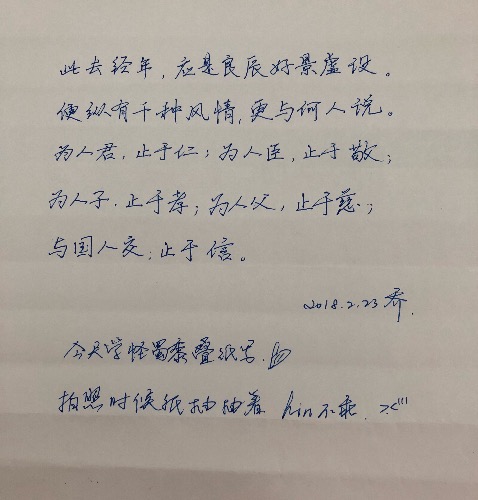 此去经年，应是良辰好景虚设。
便纵有千种风情，更与何人说。
为人君，止于仁；为人臣，止于敬；
为人子，止于孝；为人父，止于慈；
与国人交，止于信。
2018.2.23 乔.
今天学怪蜀黍叠纸写.
拍照时候纸抽抽着 hin不乖.